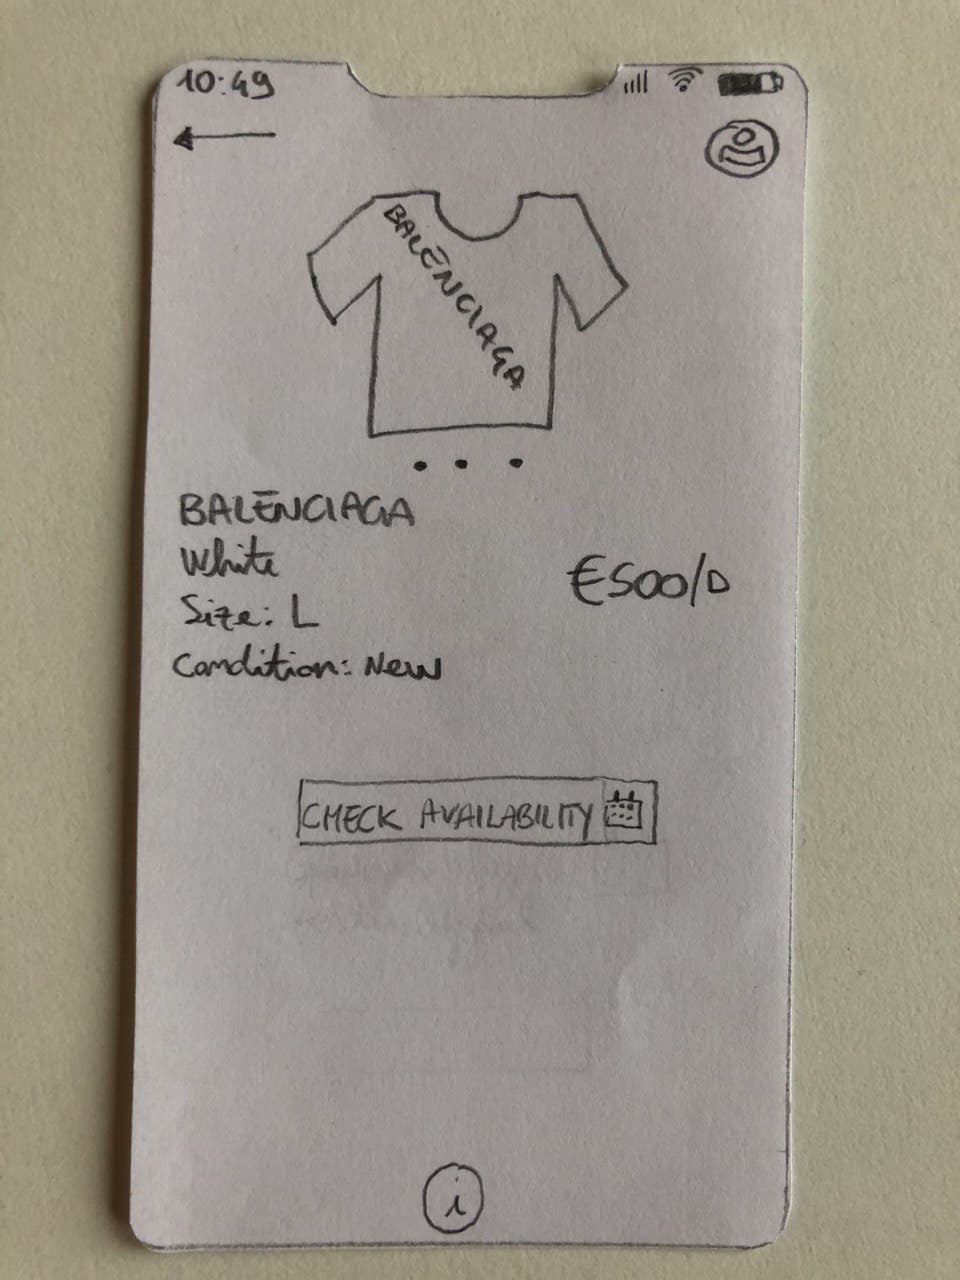 10:49
BALENCIAGA
BALENCIAGA
White
Size: L
€500/D
Condition: New
CHECK AVAILABILITY
i